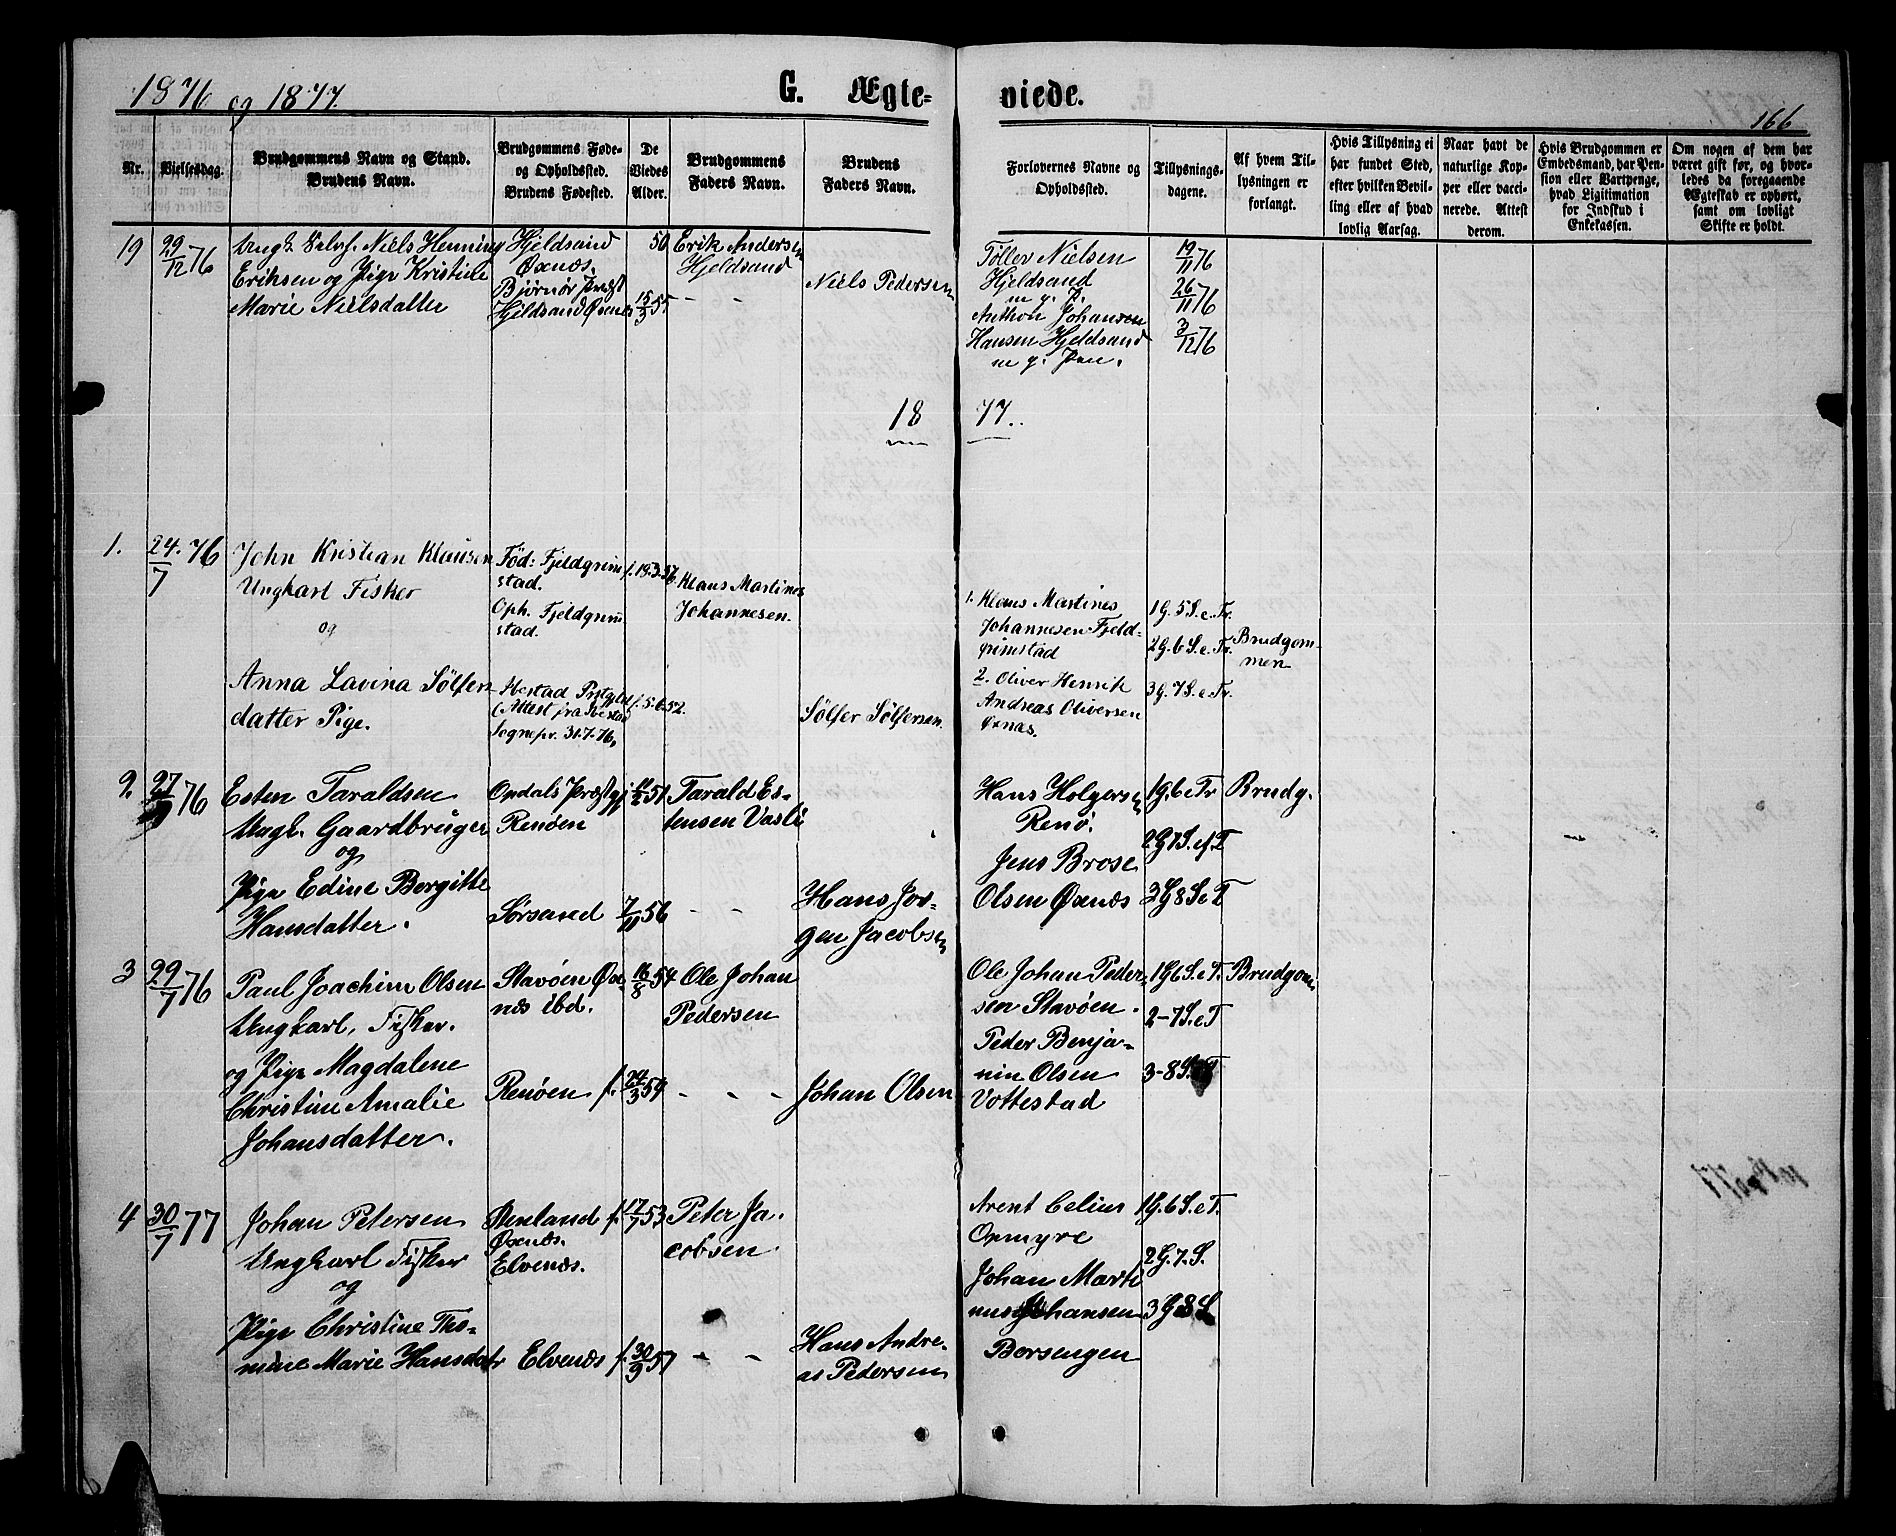 1876 og 1877.
G. Ægte-
viede.
166
Nr.
Vielsesdag.
Brudgommens Navn og Stand.
Brudens Navn.
Brudgommens Føde-
og Opholdssted.
Brudens Fødested.
De
Viedes
Alder.
Brudgommens
Faders Navn.
Brudens
Faders Navn.
Forlovernes Navne og
Opholdssted.
Tillysnings-
dagene.
Af hvem Til-
lysningen er
forlangt.
Hvis Tillysning ei
har fundet Sted,
efter hvilken Bevil-
ling eller af hvad
lovlig Aarsag.
Naar havt de
naturlige Kop-
per eller vacci-
nerede. Attest
derom.
Hvis Brudgommen er
Embedsmand, har Pen-
sion eller Vartpenge,
hvad Legitimation
for Indskud i
Enkekassen.
Om nogen af dem har
været gift før, og hvor-
ledes da foregaaende
Ægteskab er ophørt,
samt om lovligt
Skifte er holdt.
19
29/12 76
Ungk. Selvf. Niels Henning
Eriksen og Pige Kristine
Marie Nielsdatter
Hjeldsand
Øxnæs.
Bjørnør Præst
Hjeldsand Øxnes
50
15/3 55
Erik Andersen
Hjeldsand
Niels Pedersen
Töller Nielsen
Hjeldsand
m. g. P.
Anthon Johansen
Hansen Hjeldsand
m. g. Pen.
19/11 76
26/11 76
3/12 76
18 77.
1.
24/7 76
John Kristian Klausen
Ungkarl Fisker
og
Anna Lavina Sölfer
datter Pige.
Fød: Fjeldgrim
stad.
Oph. Fjeldgrim
stad.
Ibestad Prstgjld
(Attest fra Ibestad
Sognepr. 31.7.76)
f. 19.3.57
f. 5.6.52.
Klaus Martines
Johannesen.
Sölfer Sölfersen.
1. Klaus Martines
Johannesen Fjeld-
grimstad
2. Oliver Henrik
Andreas Oliversen
Øxnas.
1 G. 5 S. e. Tr.
2 G. 6 S. e. Tr.
3 G. 7 S. e. Tr.
Brudgom-
men
2.
27/7 76
Esten Taraldsen
Ungk. Gaardbruger
og
Pige Edine Bergitte
Hansdatter.
Opdals Præstgj
Renöen
Sörsand
51
7/11 56
Tarald Es-
tensen Vasli
Hans Jör-
gen Jacobsen
Hans Holgersen
Renö.
Jens Brose
Olsen Øxnæs
1 G. 6 e Tr
2 G 7 S. ef. T
3 G 8 S e T
Brudg.
3
29/7 76
Paul Joachim Olsen
Ungkarl, Fisker.
og Pige Magdalene
Christine Amalie
Johansdatter.
Stavöen Øx-
næs ibd.
Renöen
16/8 54
f. 24/3 59
Ole Johan
Pedersen
Johan Olsen
Ole Johan Peder-
sen Stavöen.
Peder Benja-
min Olsen
Vottestad
1 G 6 S. e T.
2-7 S. e T
3-8 S. e T
Brudgom
4
30/7 77
Johan Petersen
Ungkarl Fisker
og
Pige Christine Tho-
mine Marie Hansdatr
Øxnæs.
Elvenæs.
Elvenæs
f. 17/7 53
f. 30/9 57
Peter Ja-
cobsen
Hans Andre-
as Pedersen
Arent Celius
Opmyre
Johan Marti
nus Johansen
Borsengen
1 G. 6 S. e T.
2 G. 7. S.
3 G 8 S